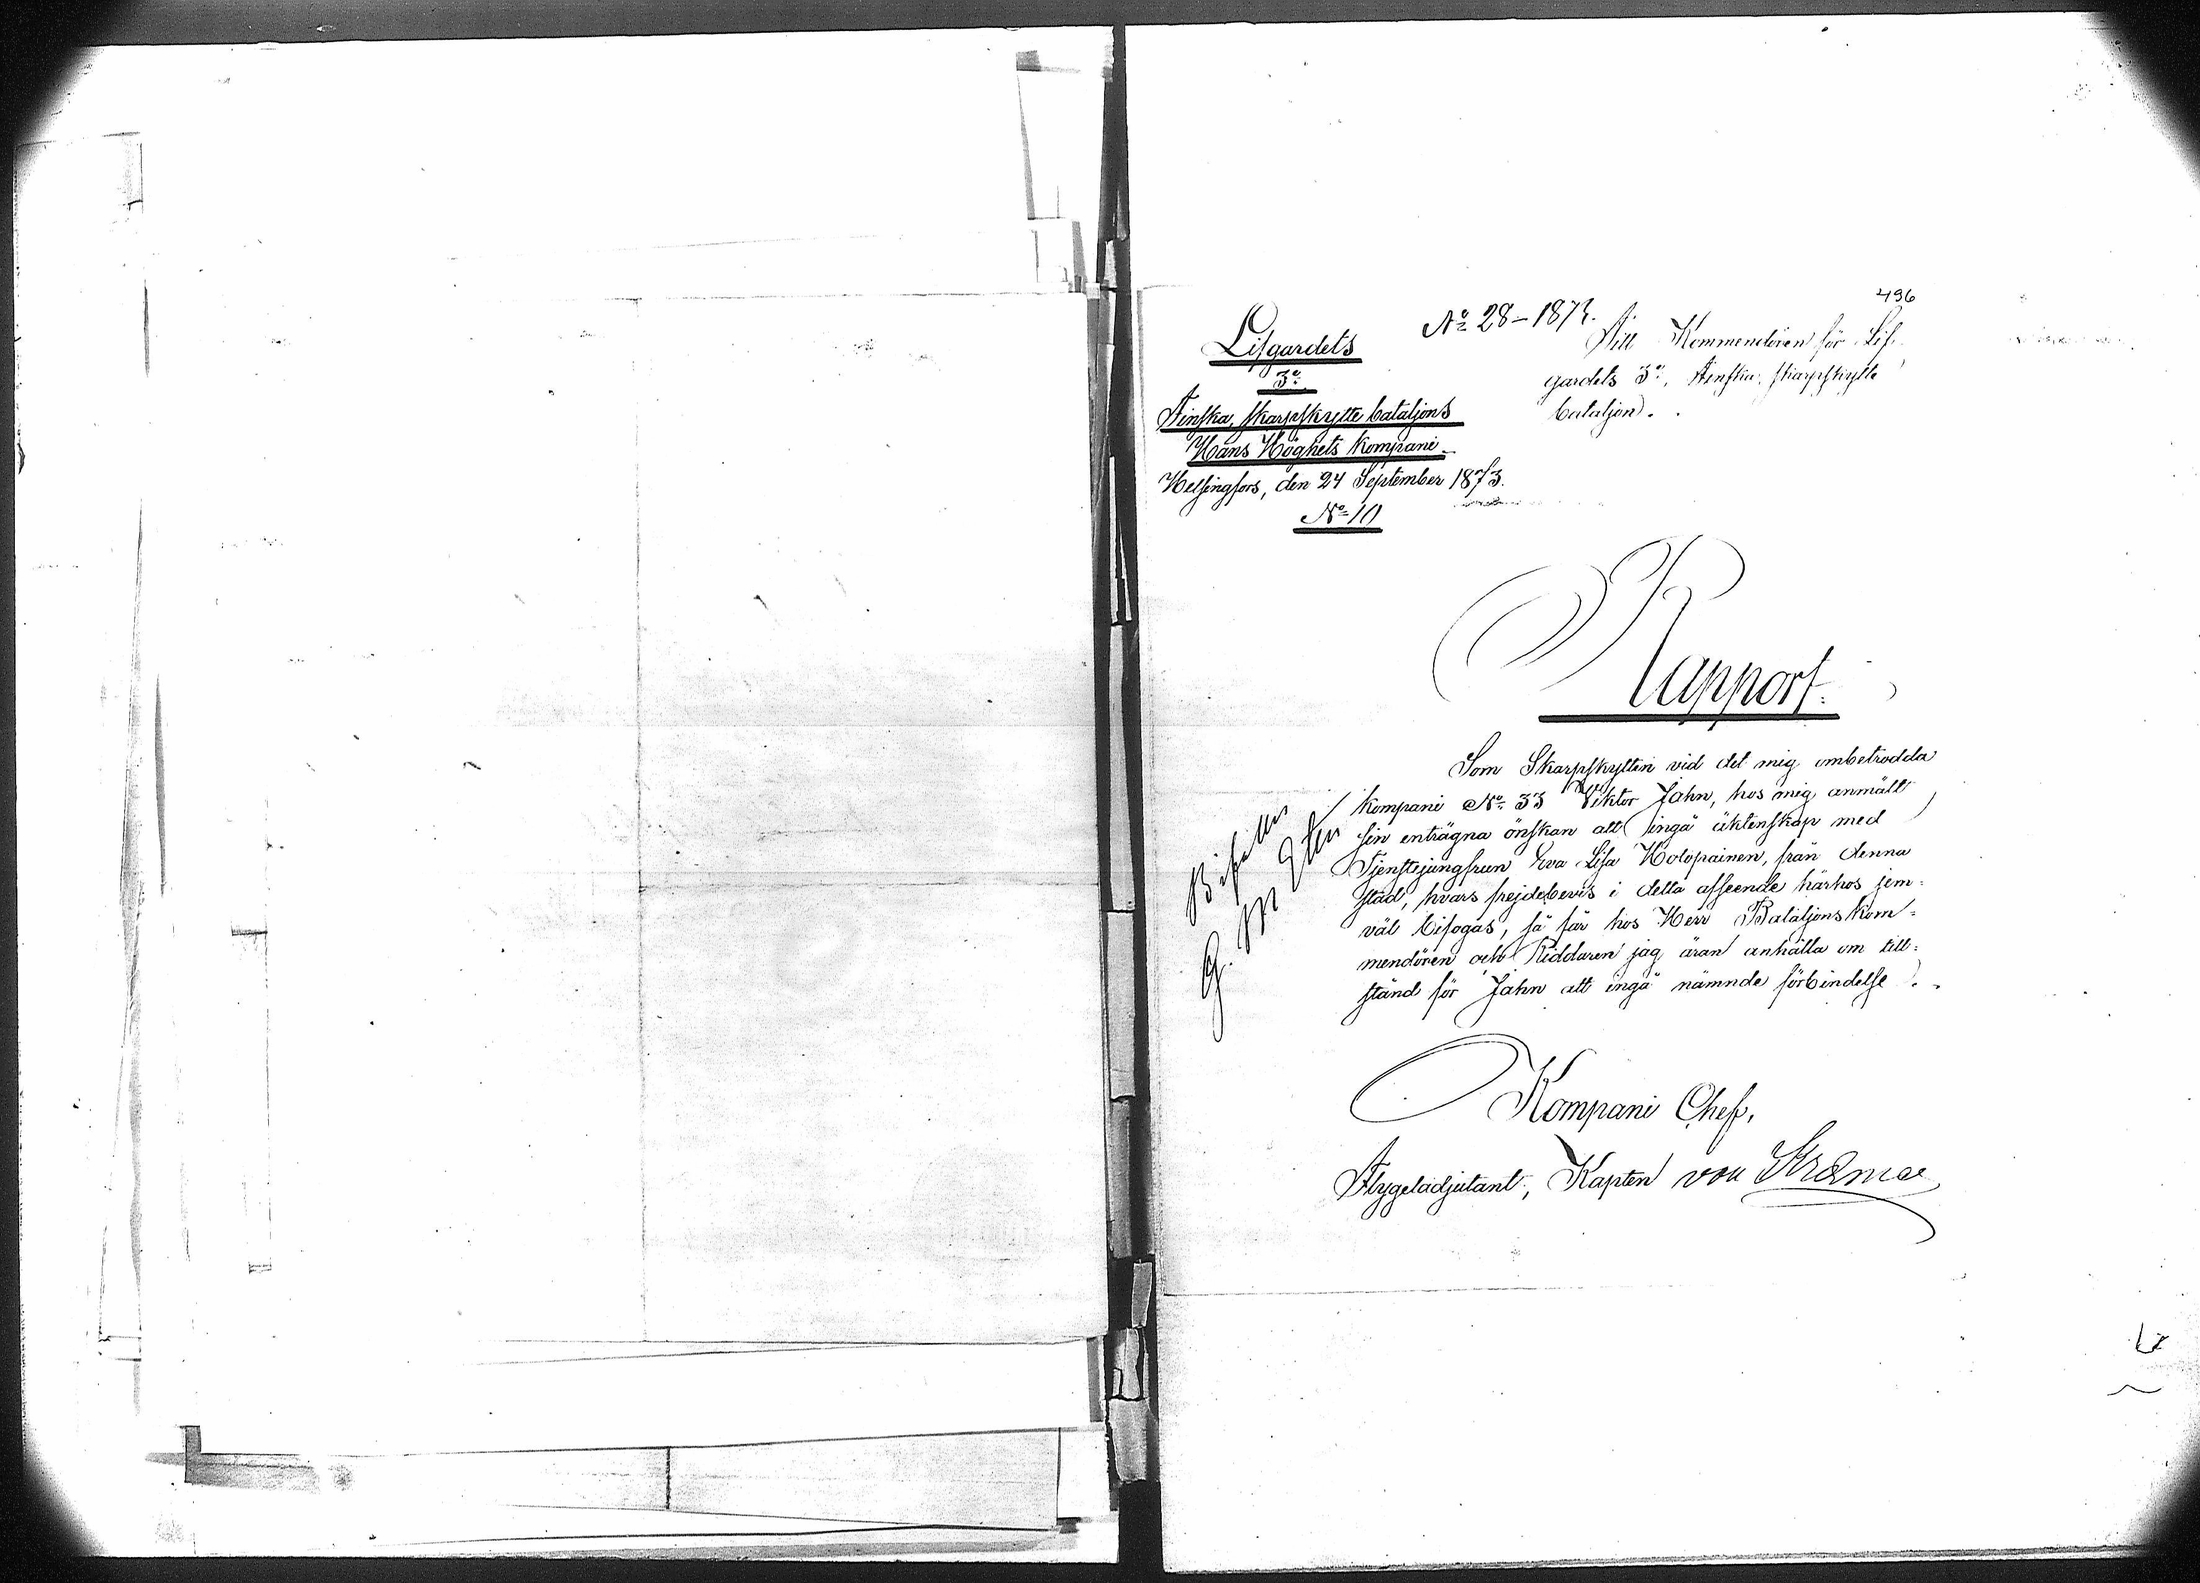 496
Lifgardets
3e
Finska, Skarpskytte bataljons
Hans Höghets Kompani
Helsingfors, den 24 September 1873.
No 10
No 28 – 1873.
Till Kommendören för Lif-
gardets 3e, Finska, skarpskytte
bataljon.
Rapport.
Som Skarpskytten vid det mig ombetrodda
kompani No 33 Viktor Jahn, hos mig anmält
sin enträgna önskan att ingå äktenskap med
Tjenstejungfrun Eva Lisa Holopainen, från denna
stad, hvars frejdebevis i detta afseende härhos jem-
väl bifogas, så får hos Herr Bataljonskom-
mendören och Riddaren jag äran anhålla om till-
stånd för Jahn att ingå nämnde förbindelse.
Bifalles
G. M
Kompani Chef,
Flygeladjutant, Kapten von Kræmer